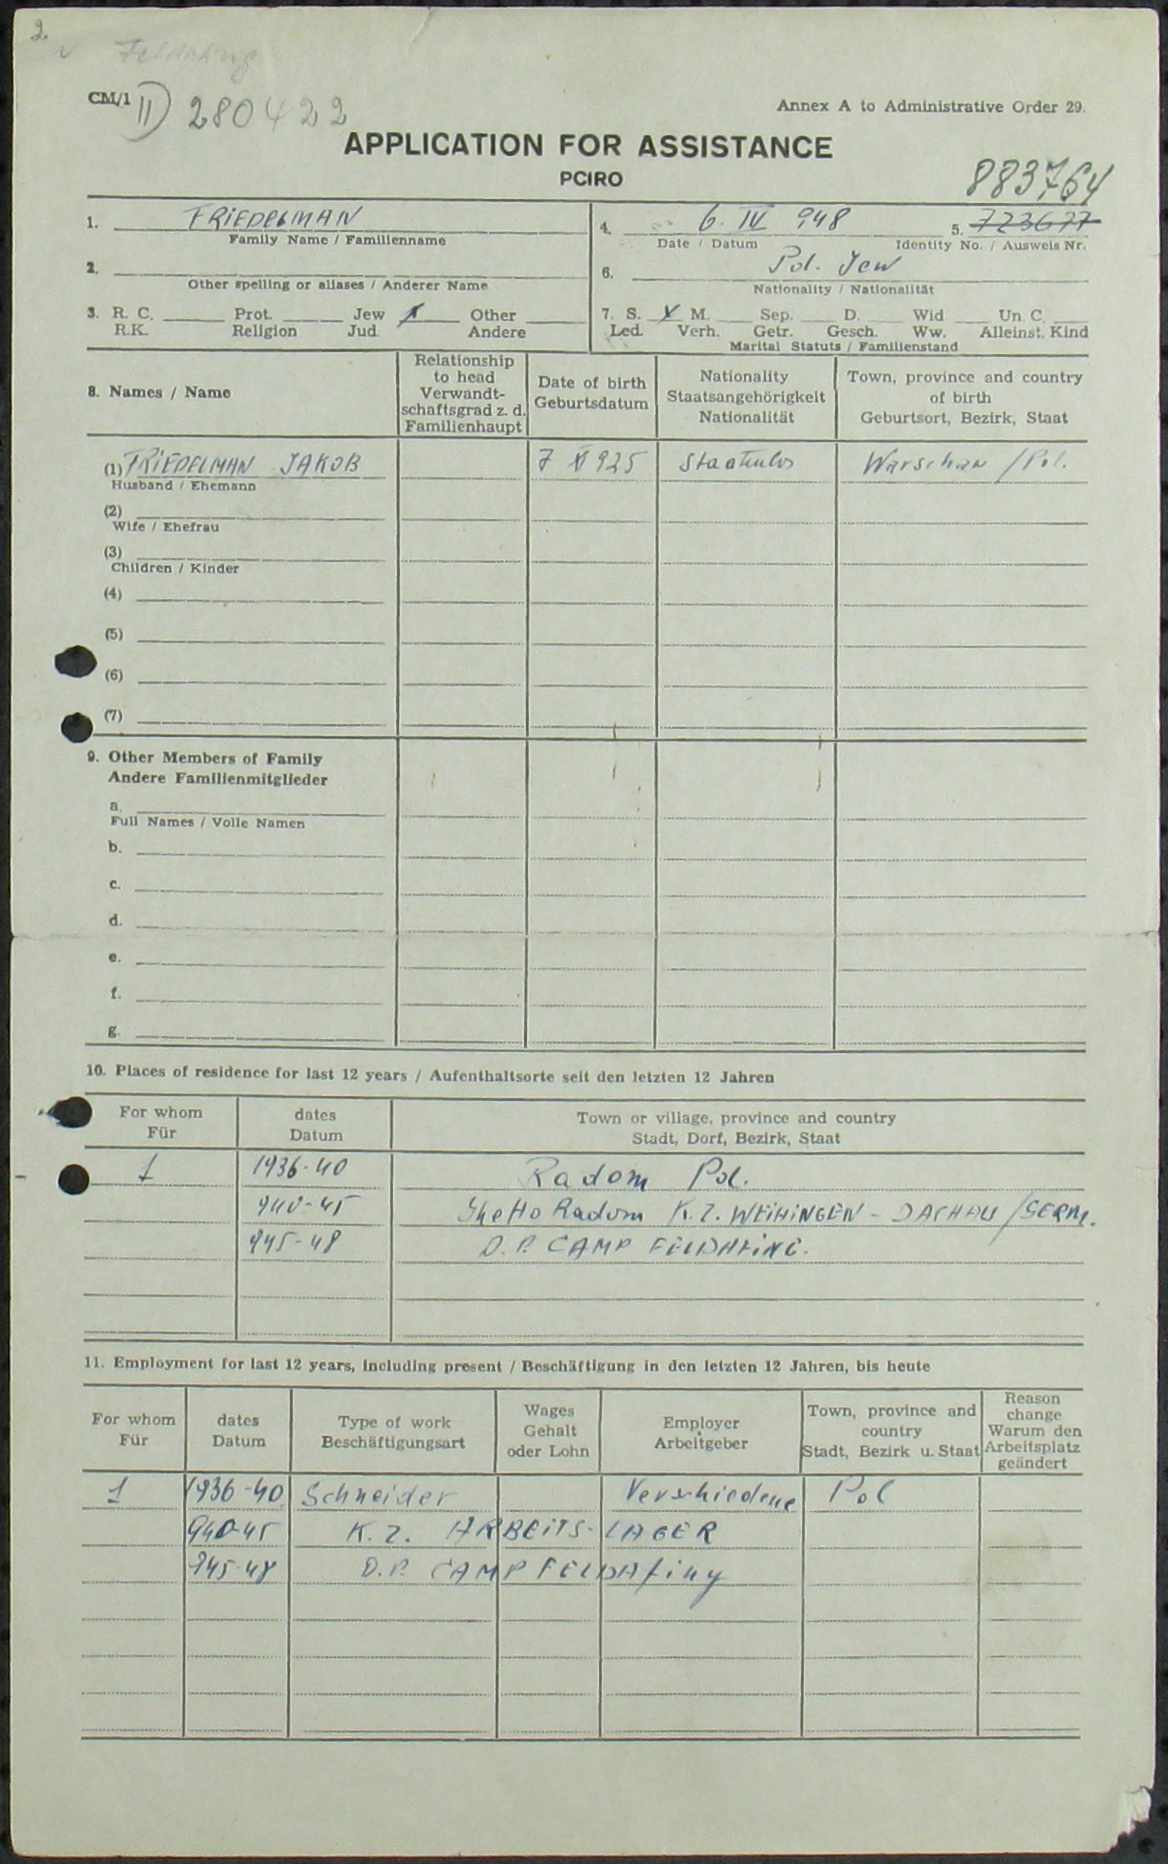 2.
v Feldafing
CM/1 II) 280422
Annex A to Administrative Order 29.
APPLICATION FOR ASSISTANCE
PCIRO
883764
1. FRIEDELMAN
Family Name / Familienname
4. 6. IV 948
Date / Datum
5. 723677
Identity No. / Ausweis Nr.
2.
Other spelling or aliases / Anderer Name
6. Pol. Jew
Nationality / Nationalität
3. R. C. Prot. Jew X Other
R.K. Religion Jud Andere
7. S. X M. Sep. D. Wid Un. C.
Led. Verh. Getr. Gesch. Ww. Alleinst. Kind
Marital Statuts / Familienstand
8. Names / Name
Relationship
to head
Verwandt-
schaftsgrad z. d.
Familienhaupt
Date of birth
Geburtsdatum
Nationality
Staatsangehörigkeit
Nationalität
Town, province and country
of birth
Geburtsort, Bezirk, Staat
(1) FRIEDELMAN JAKOB 7 XI 925 Staatenlos Warschau / Pol.
Husband / Ehemann
(2)
Wife / Ehefrau
(3)
Children / Kinder
(4)
(5)
(6)
(7)
9. Other Members of Family
Andere Familienmitglieder
a.
Full Names / Volle Namen
b.
c.
d.
e.
f.
g.
10. Places of residence for last 12 years / Aufenthaltsorte seit den letzten 12 Jahren
For whom
Für
dates
Datum
Town or village, province and country
Stadt, Dorf, Bezirk, Staat
1 1936-40 Radom Pol.
940-45 Ghetto Radom K.Z. WEIHINGEN - DACHAU / GERM.
945-48 D.P. CAMP FELDAFING.
11. Employment for last 12 years, including present / Beschäftigung in den letzten 12 Jahren, bis heute
For whom
Für
dates
Datum
Type of work
Beschäftigungsart
Wages
Gehalt
oder Lohn
Employer
Arbeitgeber
Town, province and
country
Stadt, Bezirk u. Staat
Reason
change
Warum den
Arbeitsplatz
geändert
1 1936-40 Schneider Verschiedene Pol
940-45 K.Z. ARBEITS-LAGER
945-48 D.P. CAMP FELDAfing